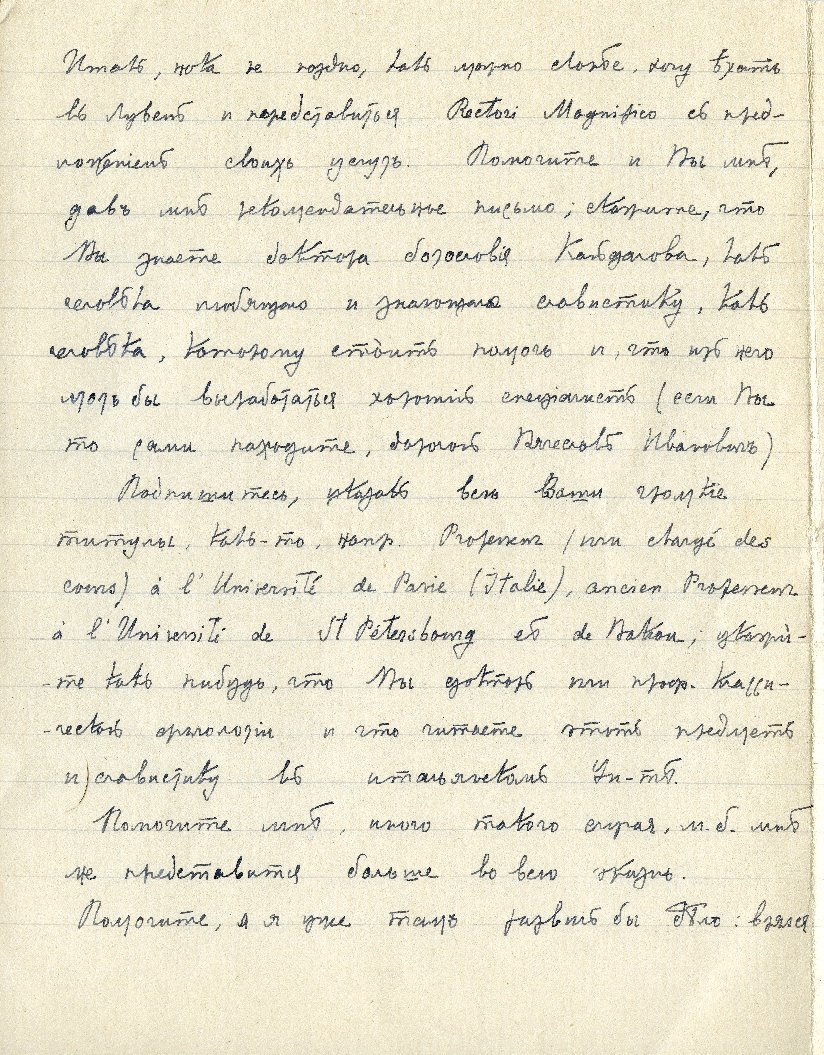 Итакъ, пока не поздно, какъ можно скорѣе, хочу ѣхать
въ Лувенъ и представиться Rectori Magnifico съ пред-
ложеніемъ своихъ услугъ. Помогите и Вы мнѣ,
давъ мнѣ рекомендательное письмо; скажите, что
Вы знаете доктора богословія Кайдалова, какъ
человѣка любящаго и знающаго славистику, какъ
человѣка, которому сто́итъ помочь и, что изъ него
могъ бы выработаться хорошій спеціалистъ (если Вы
то сами находите, дорогой Вячеславъ Ивановичъ)
Подпишитесь, указавъ всѣ Ваши громкіе
титулы, какъ-то, напр. Professeur (или chargé des
cours) à l'Université de Pavie (Italie), ancien Professeur
à l'Université de St Pétersbourg et de Bakou; укажи-
-те какъ нибудь, что Вы докторъ или проф. класси-
-ческой филологіи и что читаете этотъ предметъ
и) славистику въ итальянскомъ Ун-тѣ.
Помогите мнѣ, иного такого случая, м.б. мнѣ
не представится больше во всю жизнь.
Помогите, а я уже тамъ развилъ бы дѣло: взялся